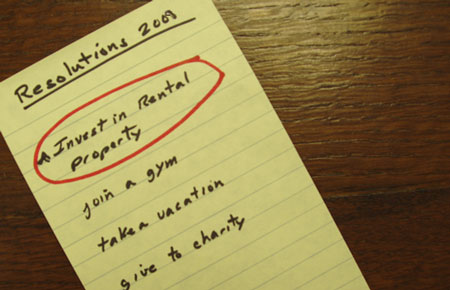 Resolutions 2009
Invest in Rental
Property
join a gym
take a vacation
give to charity